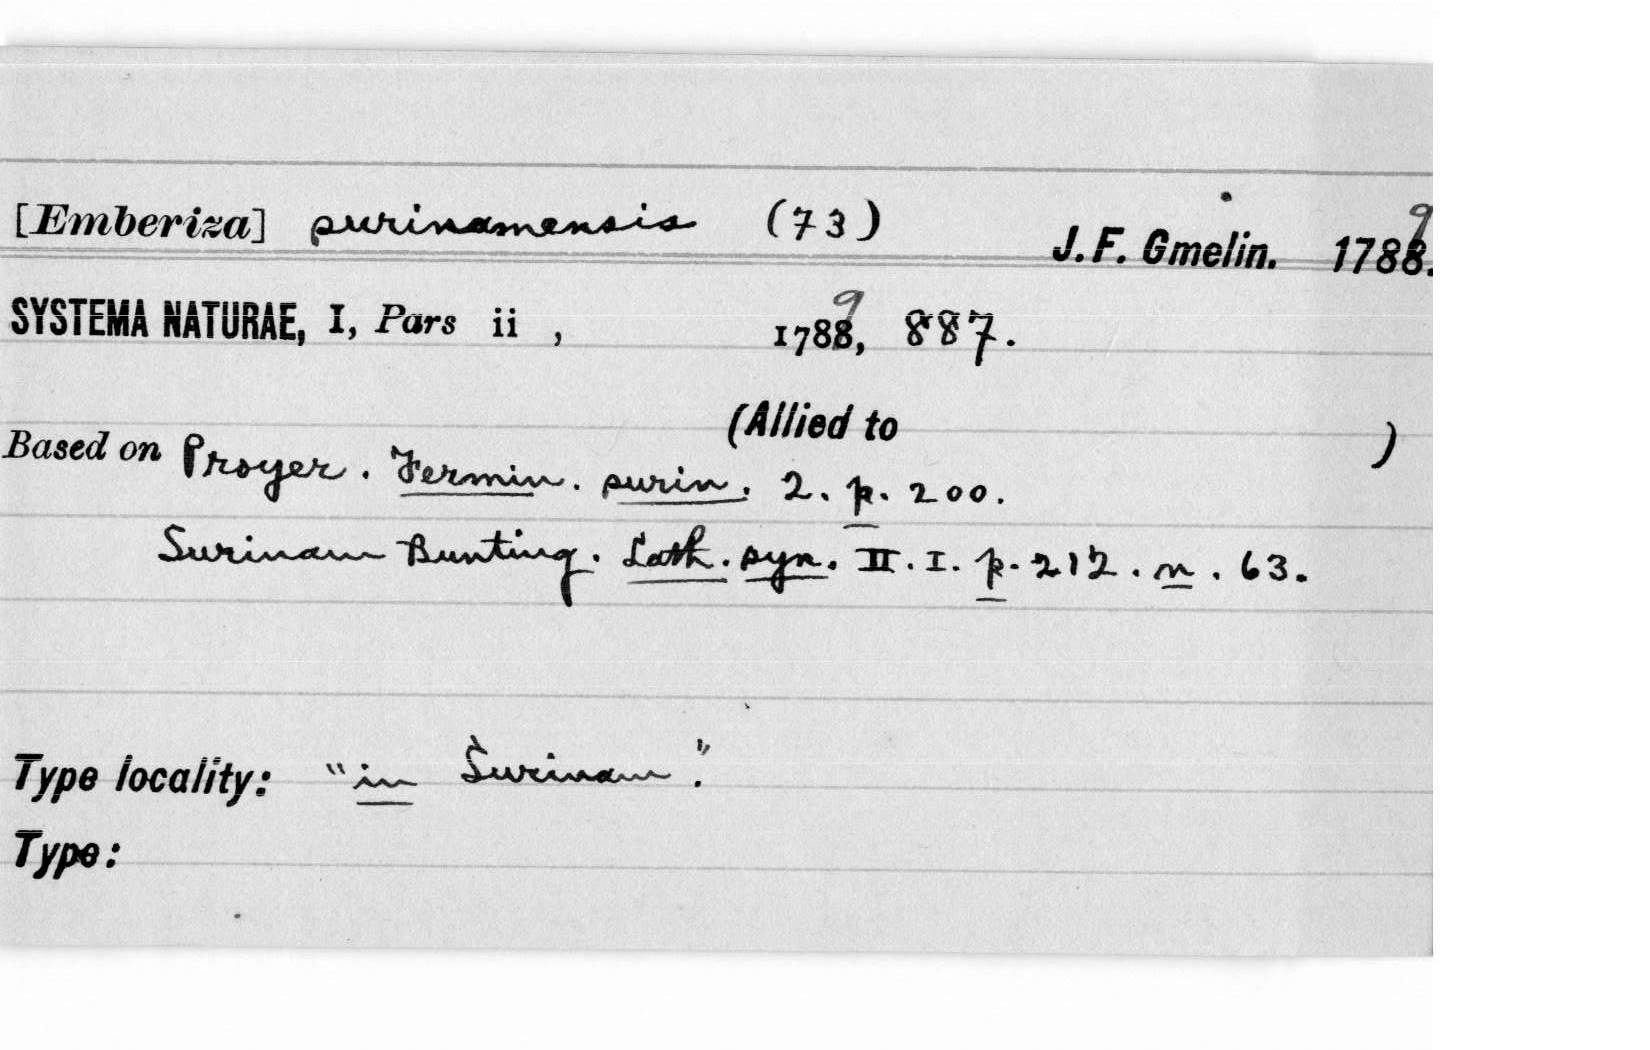 [Emberiza] surinamensis (73) J. F. Gmelin. 1789.
SYSTEMA NATURAE, I, Pars ii , 1789, 887.
(Allied to )
Based on Proyer. Fermin. surin. 2. p. 200.
Surinam Bunting. Lath. syn. II. I. p. 212. n. 63.
Type locality: "in Surinam".
Type: